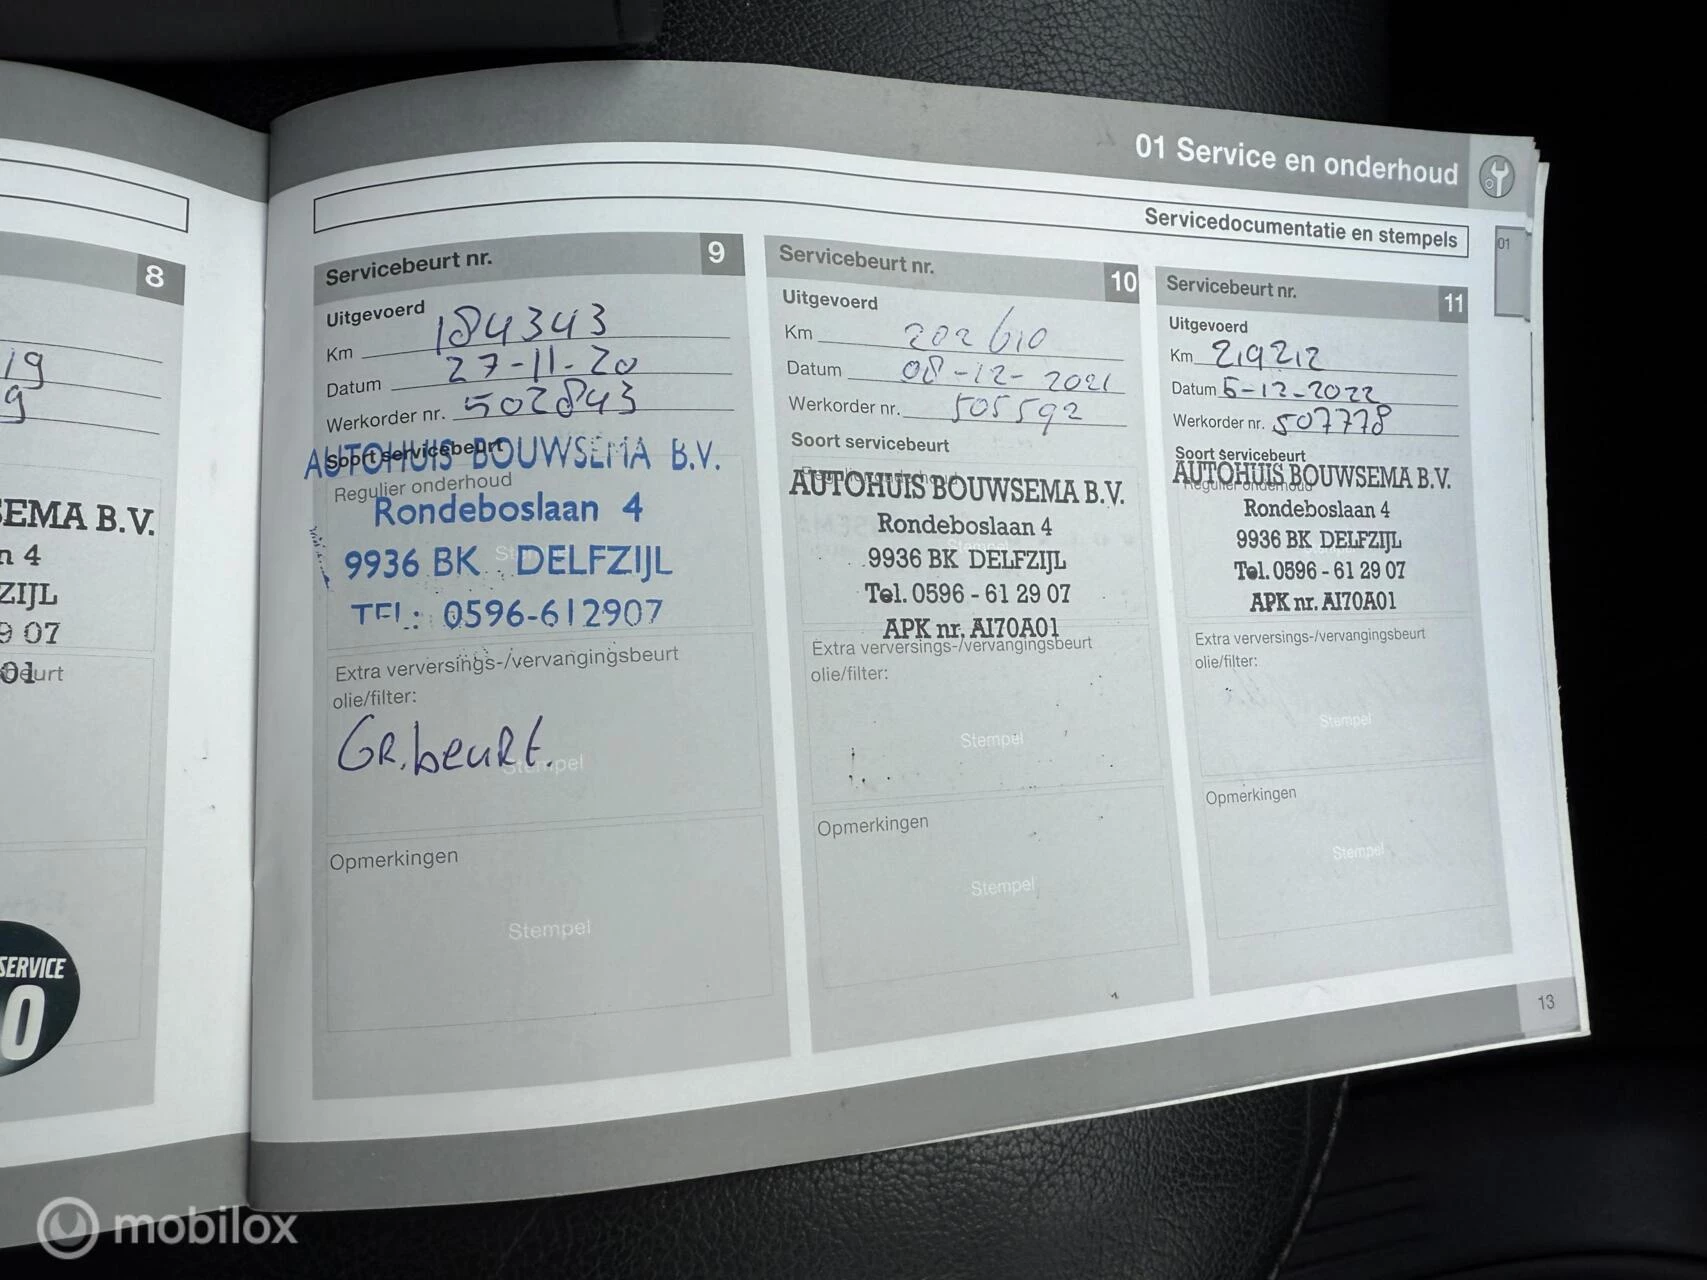 01 Service en onderhoud
Servicedocumentatie en stempels
01
8
19
9
SEMA B.V.
n 4
ZIJL
9 07
01
beurt
SERVICE
0
Servicebeurt nr. 9
Uitgevoerd
Km 184343
Datum 27-11-20
Werkorder nr. 502843
Soort servicebeurt
AUTOHUIS BOUWSEMA B.V.
Regulier onderhoud
Rondeboslaan 4
Stempel
9936 BK DELFZIJL
TEL: 0596-612907
Extra verversings-/vervangingsbeurt
olie/filter:
GR.beurt.
Stempel
Opmerkingen
Stempel
Servicebeurt nr. 10
Uitgevoerd
Km 202610
Datum 08-12-2021
Werkorder nr. 505592
Soort servicebeurt
Regulier onderhoud
AUTOHUIS BOUWSEMA B.V.
Rondeboslaan 4
Stempel
9936 BK DELFZIJL
Tel. 0596 - 61 29 07
APK nr. AI70A01
Extra verversings-/vervangingsbeurt
olie/filter:
Stempel
Opmerkingen
Stempel
Servicebeurt nr. 11
Uitgevoerd
Km 219212
Datum 5-12-2022
Werkorder nr. 507778
Soort servicebeurt
AUTOHUIS BOUWSEMA B.V.
Regulier onderhoud
Rondeboslaan 4
9936 BK DELFZIJL
Tel. 0596 - 61 29 07
APK nr. AI70A01
Extra verversings-/vervangingsbeurt
olie/filter:
Stempel
Opmerkingen
Stempel
13
mobilox